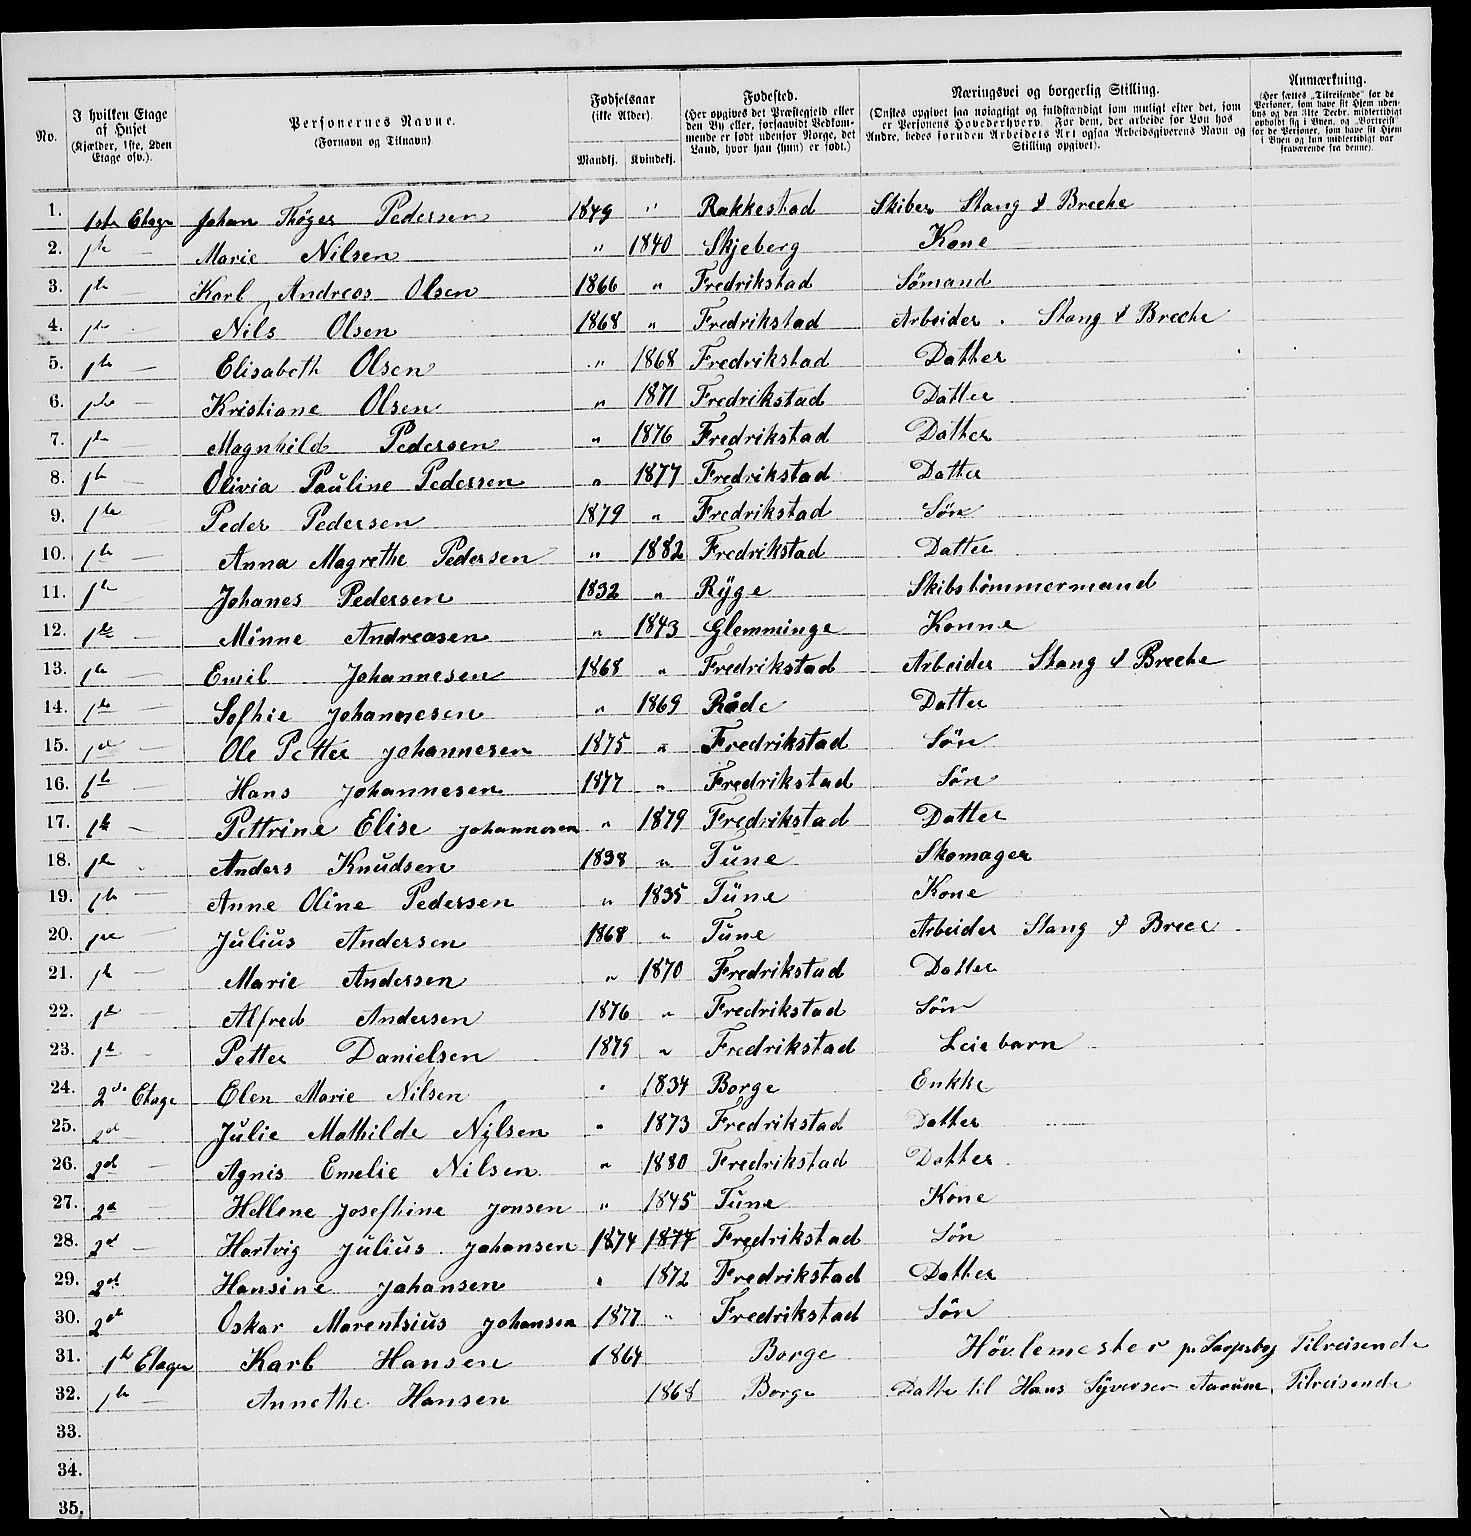 No. | I hvilken Etage af Huset (Kjælder, 1ste, 2den Etage osv.). | Personernes Navne. (Fornavn og Tilnavn) | Fødselsaar (ikke Alder). Mandkj. | Kvindekj. | Fødested. (Her opgives det Præstegjeld eller den By eller, forsaavidt Vedkommende er født udenfor Norge, det Land, hvor han (hun) er født.) | Næringsvei og borgerlig Stilling. (Ønskes opgivet saa nøiagtigt og fuldstændigt som muligt efter det, som er Personens Hovederhverv. For dem, der arbeide for Løn hos Andre, bedes foruden Arbeidets Art ogsaa Arbeidsgiverens Navn og Stilling opgivet). | Anmærkning. (Her sættes „Tilreisende“ for de Personer, som have sit Hjem udenbys og den 31te Decbr. midlertidigt opholdt sig i Byen, og „Bortreist“ for de Personer, som have sit Hjem i Byen og kun midlertidigt var fraværende fra denne).
1. | 1ste Etage | Johan Thøger Pedersen | 1849 | " | Rakkestad | Skiber Stang & Breche
2. | 1ste — | Marie Nilsen | " | 1840 | Skjeberg | Kone
3. | 1ste — | Karl Andreas Olsen | 1866 | " | Fredrikstad | Sømand
4. | 1ste | Nils Olsen | 1868 | " | Fredrikstad | Arbeider . Stang & Breche
5. | 1ste — | Elisabeth Olsen | " | 1868 | Fredrikstad | Datter
6. | 1ste — | Kristiane Olsen | " | 1871 | Fredrikstad | Datter
7. | 1ste — | Magnhild Pedersen | " | 1876 | Fredrikstad | Datter
8. | 1ste — | Olivia Pauline Pedersen | " | 1877 | Fredrikstad | Datter
9. | 1ste — | Peder Pedersen | 1879 | " | Fredrikstad | Søn
10. | 1ste — | Anna Magrethe Pedersen | " | 1882 | Fredrikstad | Datter
11. | 1ste — | Johanes Pedersen | 1832 | " | Ryge | Skibstømmermand
12. | 1ste — | Minne Andreasen | " | 1843 | Glemminge | Konne
13. | 1ste — | Emil Johannesen | 1868 | " | Fredrikstad | Arbeider Stang & Breche
14. | 1ste — | Sofhie Johannesen | " | 1869 | Råde | Datter
15. | 1ste — | Ole Petter Johannesen | 1875 | " | Fredrikstad | Søn
16. | 1ste — | Hans Johannesen | 1877 | " | Fredrikstad | Søn
17. | 1ste — | Pettrine Elise Johannesen | " | 1879 | Fredrikstad | Datter
18. | 1ste | Anders Knudsen | 1838 | " | Tune | Skomager
19. | 1ste — | Anne Oline Pedersen | " | 1835 | Tune | Kone
20. | 1ste — | Julius Andersen | 1868 | " | Tune | Arbeider Stang & Brece
21. | 1ste — | Marie Andersen | " | 1870 | Fredrikstad | Datter
22. | 1ste — | Alfred Andersen | 1876 | " | Fredrikstad | Søn
23. | 1ste — | Petter Danielsen | 1879 | " | Fredrikstad | Leiebarn
24. | 2de Etage | Elen Marie Nilsen | " | 1834 | Borge | Enkke
25. | 2d — | Julie Mathilde Nilsen | " | 1873 | Fredrikstad | Datter
26. | 2d — | Agnis Emelie Nilsen | " | 1880 | Fredrikstad | Datter
27. | 2d — | Hellene Josefhine Jonsen | " | 1845 | Tune | Kone
28. | 2d — | Hartvig Julius Johansen | 1874 | 1877 | Fredrikstad | Søn
29. | 2d | Hansine Johansen | " | 1872 | Fredrikstad | Datter
30. | 2d | Oskar Marentsius Johansen | 1877 | " | Fredrikstad | Søn
31. | 1ste Etage | Karl Hansen | 1864 | Borge | Hövlemester pr Sarpsborg | Tilreisende
32. | 1ste — | Annethe Hansen | 1868 | Borge | Datte til Hans Syverser Aarum | Tilreisende
33.
34.
35.